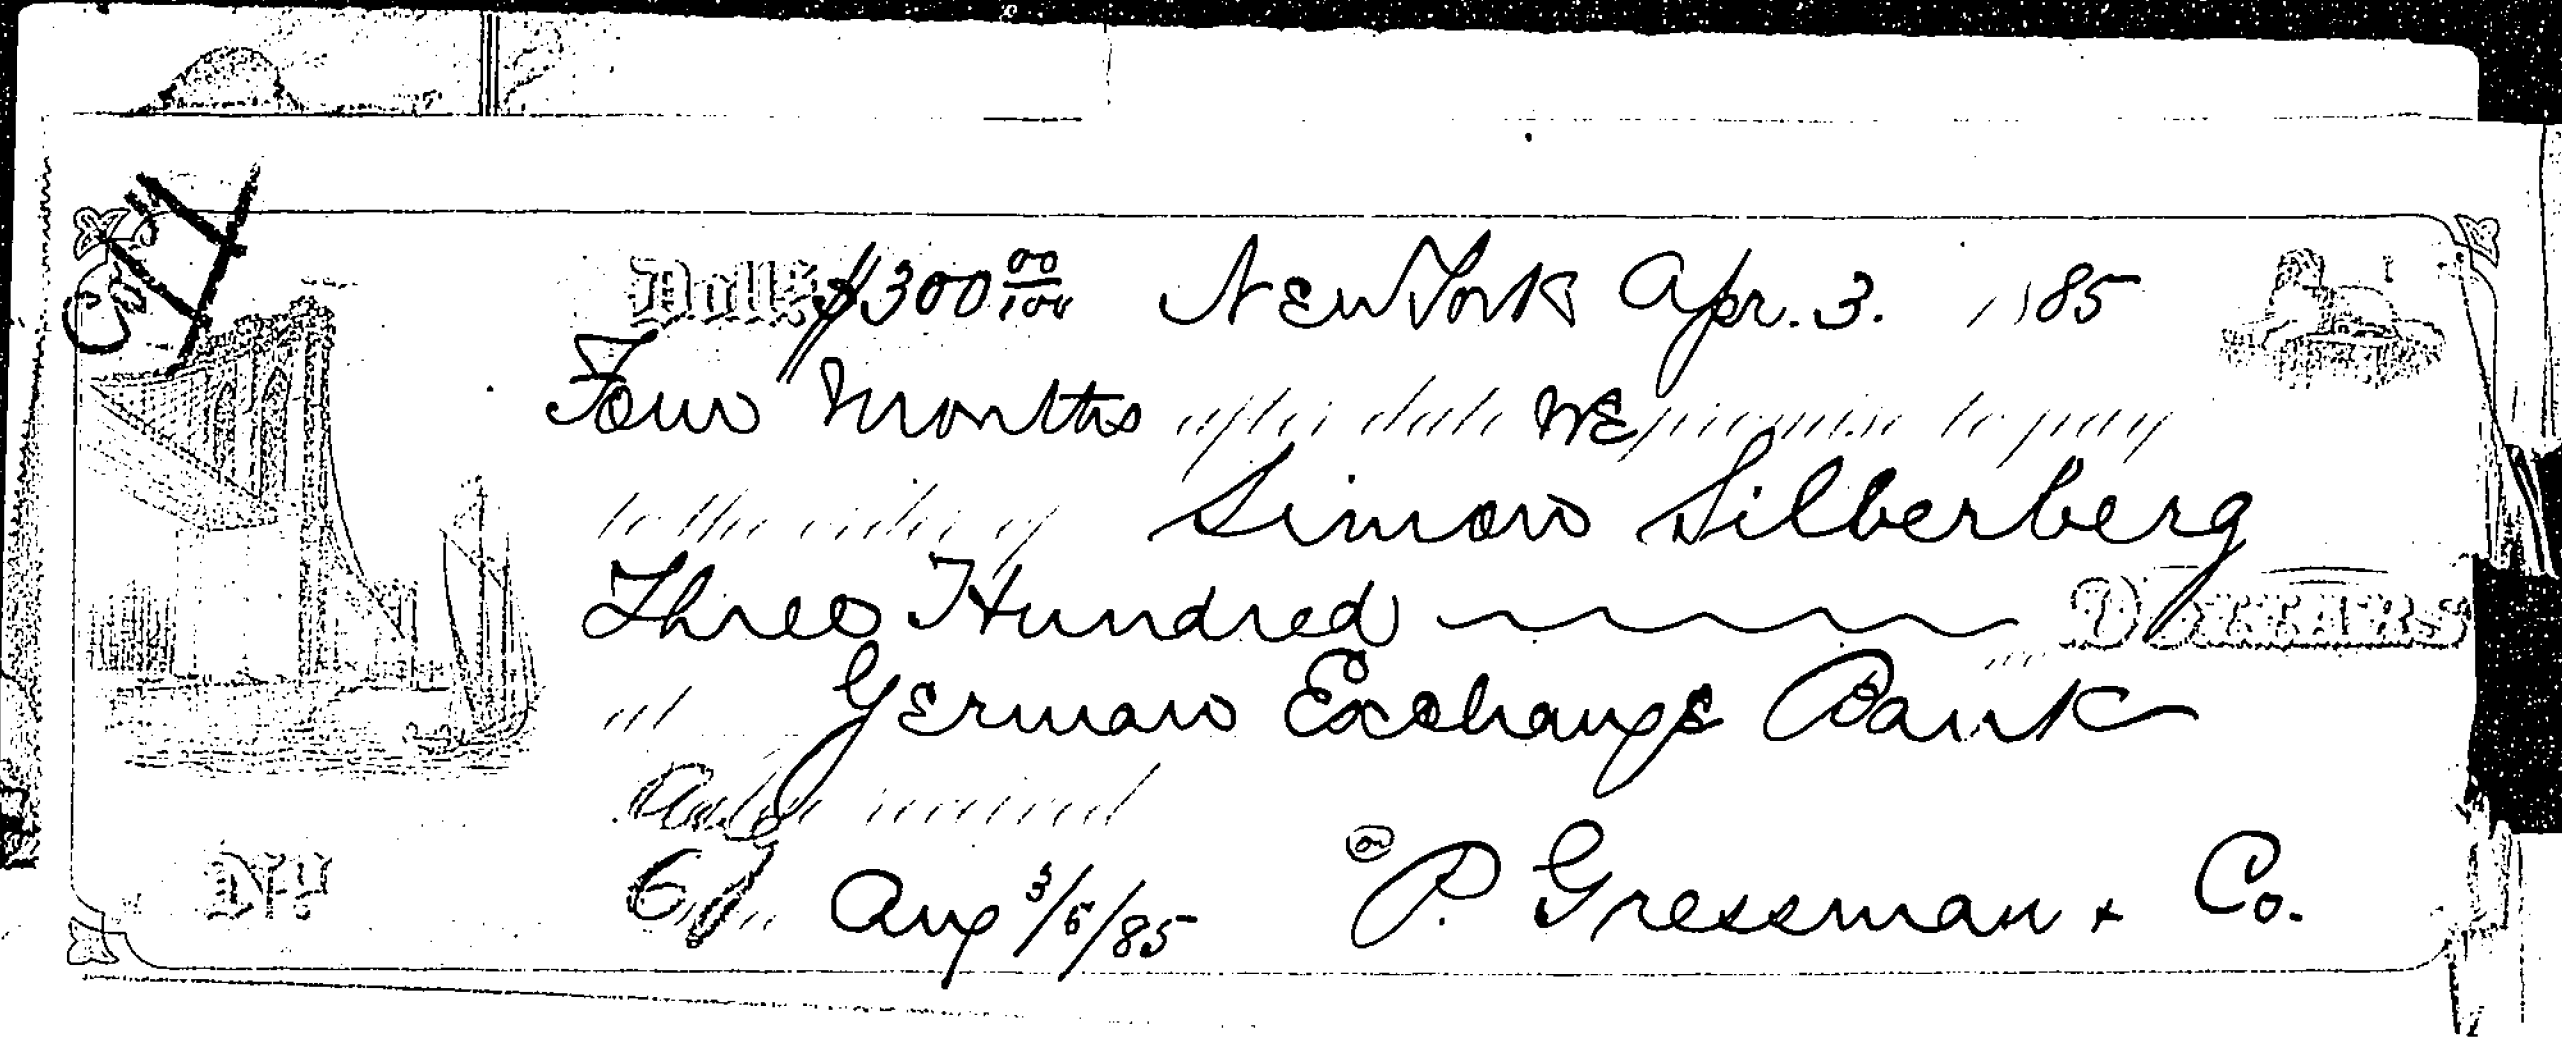 Doll$ $300 00/100 New York Apr. 3. 1885
Four Months after date we promise to pay
to the order of Simon Silberberg
Three Hundred DOLLARS
at German Exchange Bank
Value received
No Due Aug 3/6/85 P. Gressman & Co.